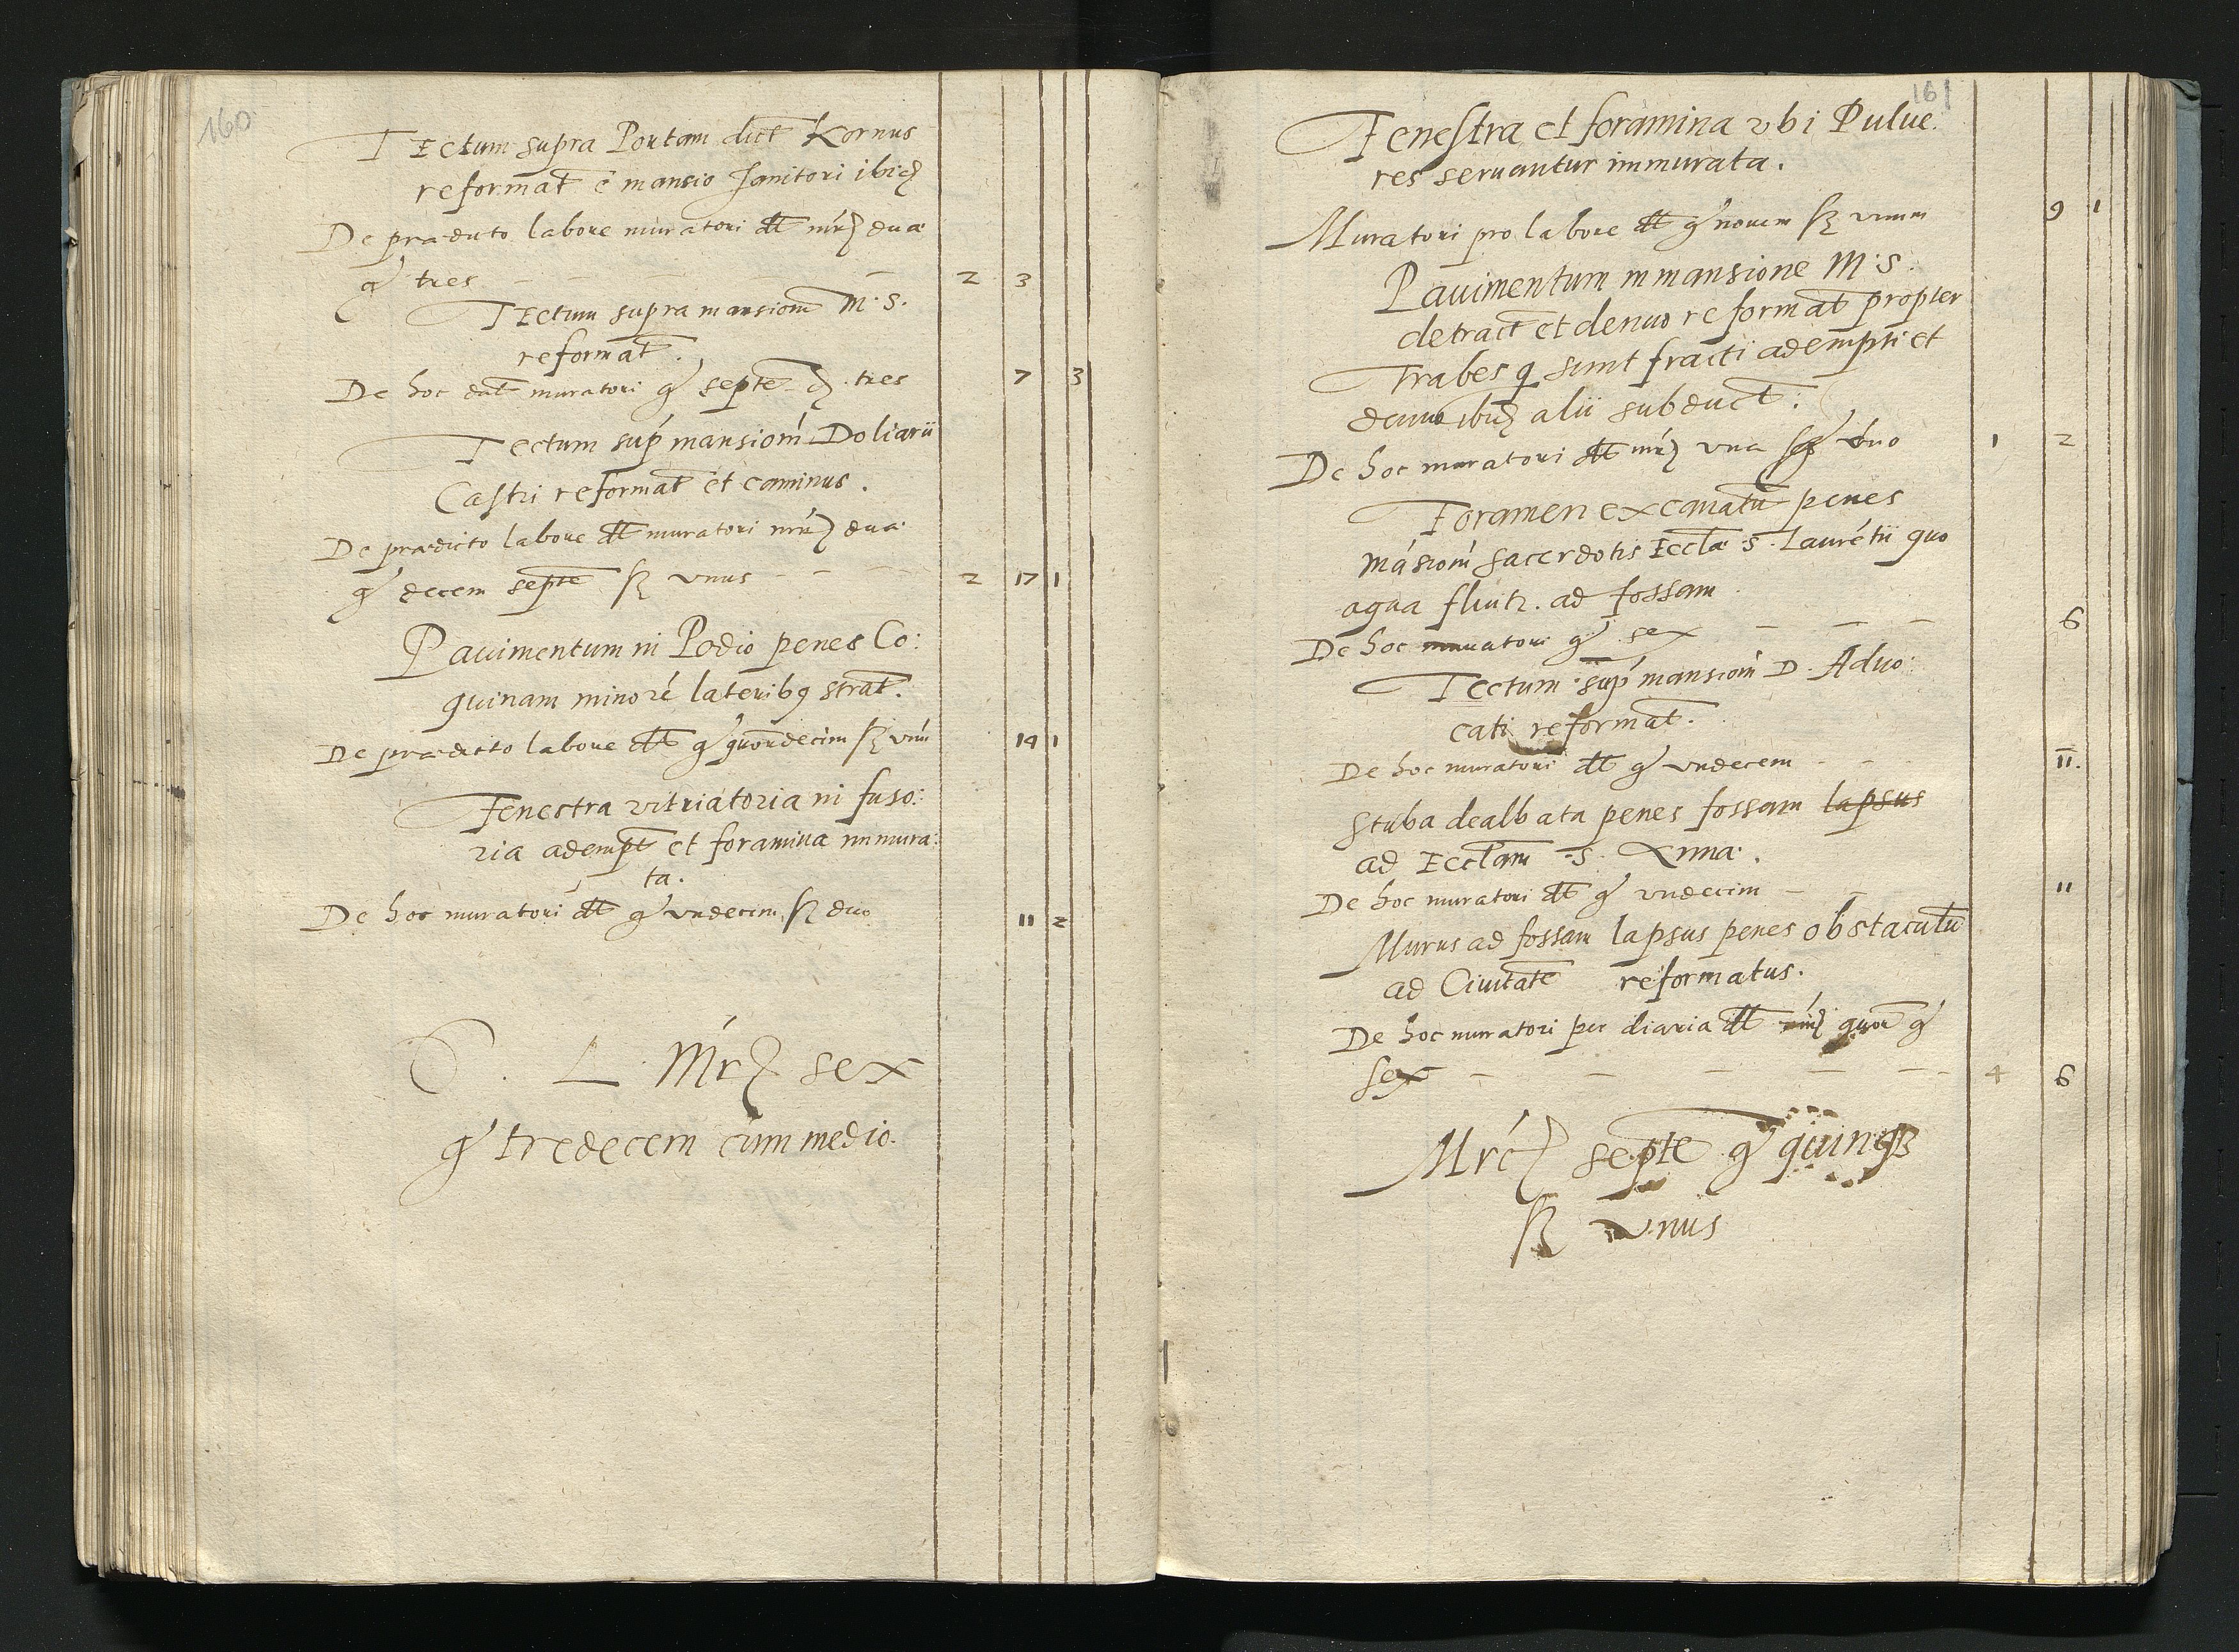 160
Tectum supra Portam dict Kornus
reformat e mansio Janitori ibid
De prædicto labore muratori dt mrc duæ
g tres - - - - 2 3
Tectum supra mansiom M. S.
reformat.
De hoc dat muratori g septe d. tres 7 3
Tectum sup mansiom Doliarii
Castri reformat et caminus.
De prædicto labore dt muratori mrc duæ
g decem septe sz vnus - - - 2 17 1
Pauimentum in Podio penes Co:
quinam minore lateribq strat.
De prædicto labore dt g quordecim sz vnu 14 1
Fenestra vitriatoria in fuso:
ria adempt et foramina immura:
ta.
De hoc muratori dt g vndecim sz duo 11 2
L Mrc sex
g tredecem cum medio.
161
Fenestra et foramina vbi Pulue:
res seruantur immurata.
Muratori pro labore dt g nouem sz vnum 9 1
Pauimentum in mansione M. S.
detract et denuo reformat propter
Trabes q sunt fracti adempti et
denuo ibid alii subduct:
De hoc muratori dt mrc vna g duo 1 2
Foramen excauatu penes
masiom sacerdotis Eccla S. Lauretii quo
aqua fluit. ad fossam
De hoc muratori g sex - - - 6
Tectum sup mansiom D. Aduo:
cati reformat.
De hoc muratori dt g vndecem - - 11.
Stuba dealbata penes fossam lapsus
ad Ecclam S. Anna.
De hoc muratori dt g vndecim - - 11
Murus ad fossam lapsus penes obstaculu
ad Ciuitate reformatus.
De hoc muratori per diaria dt mrc quor g
sex - - - - - 4 6
Mrc septe g quinq
sz vnus